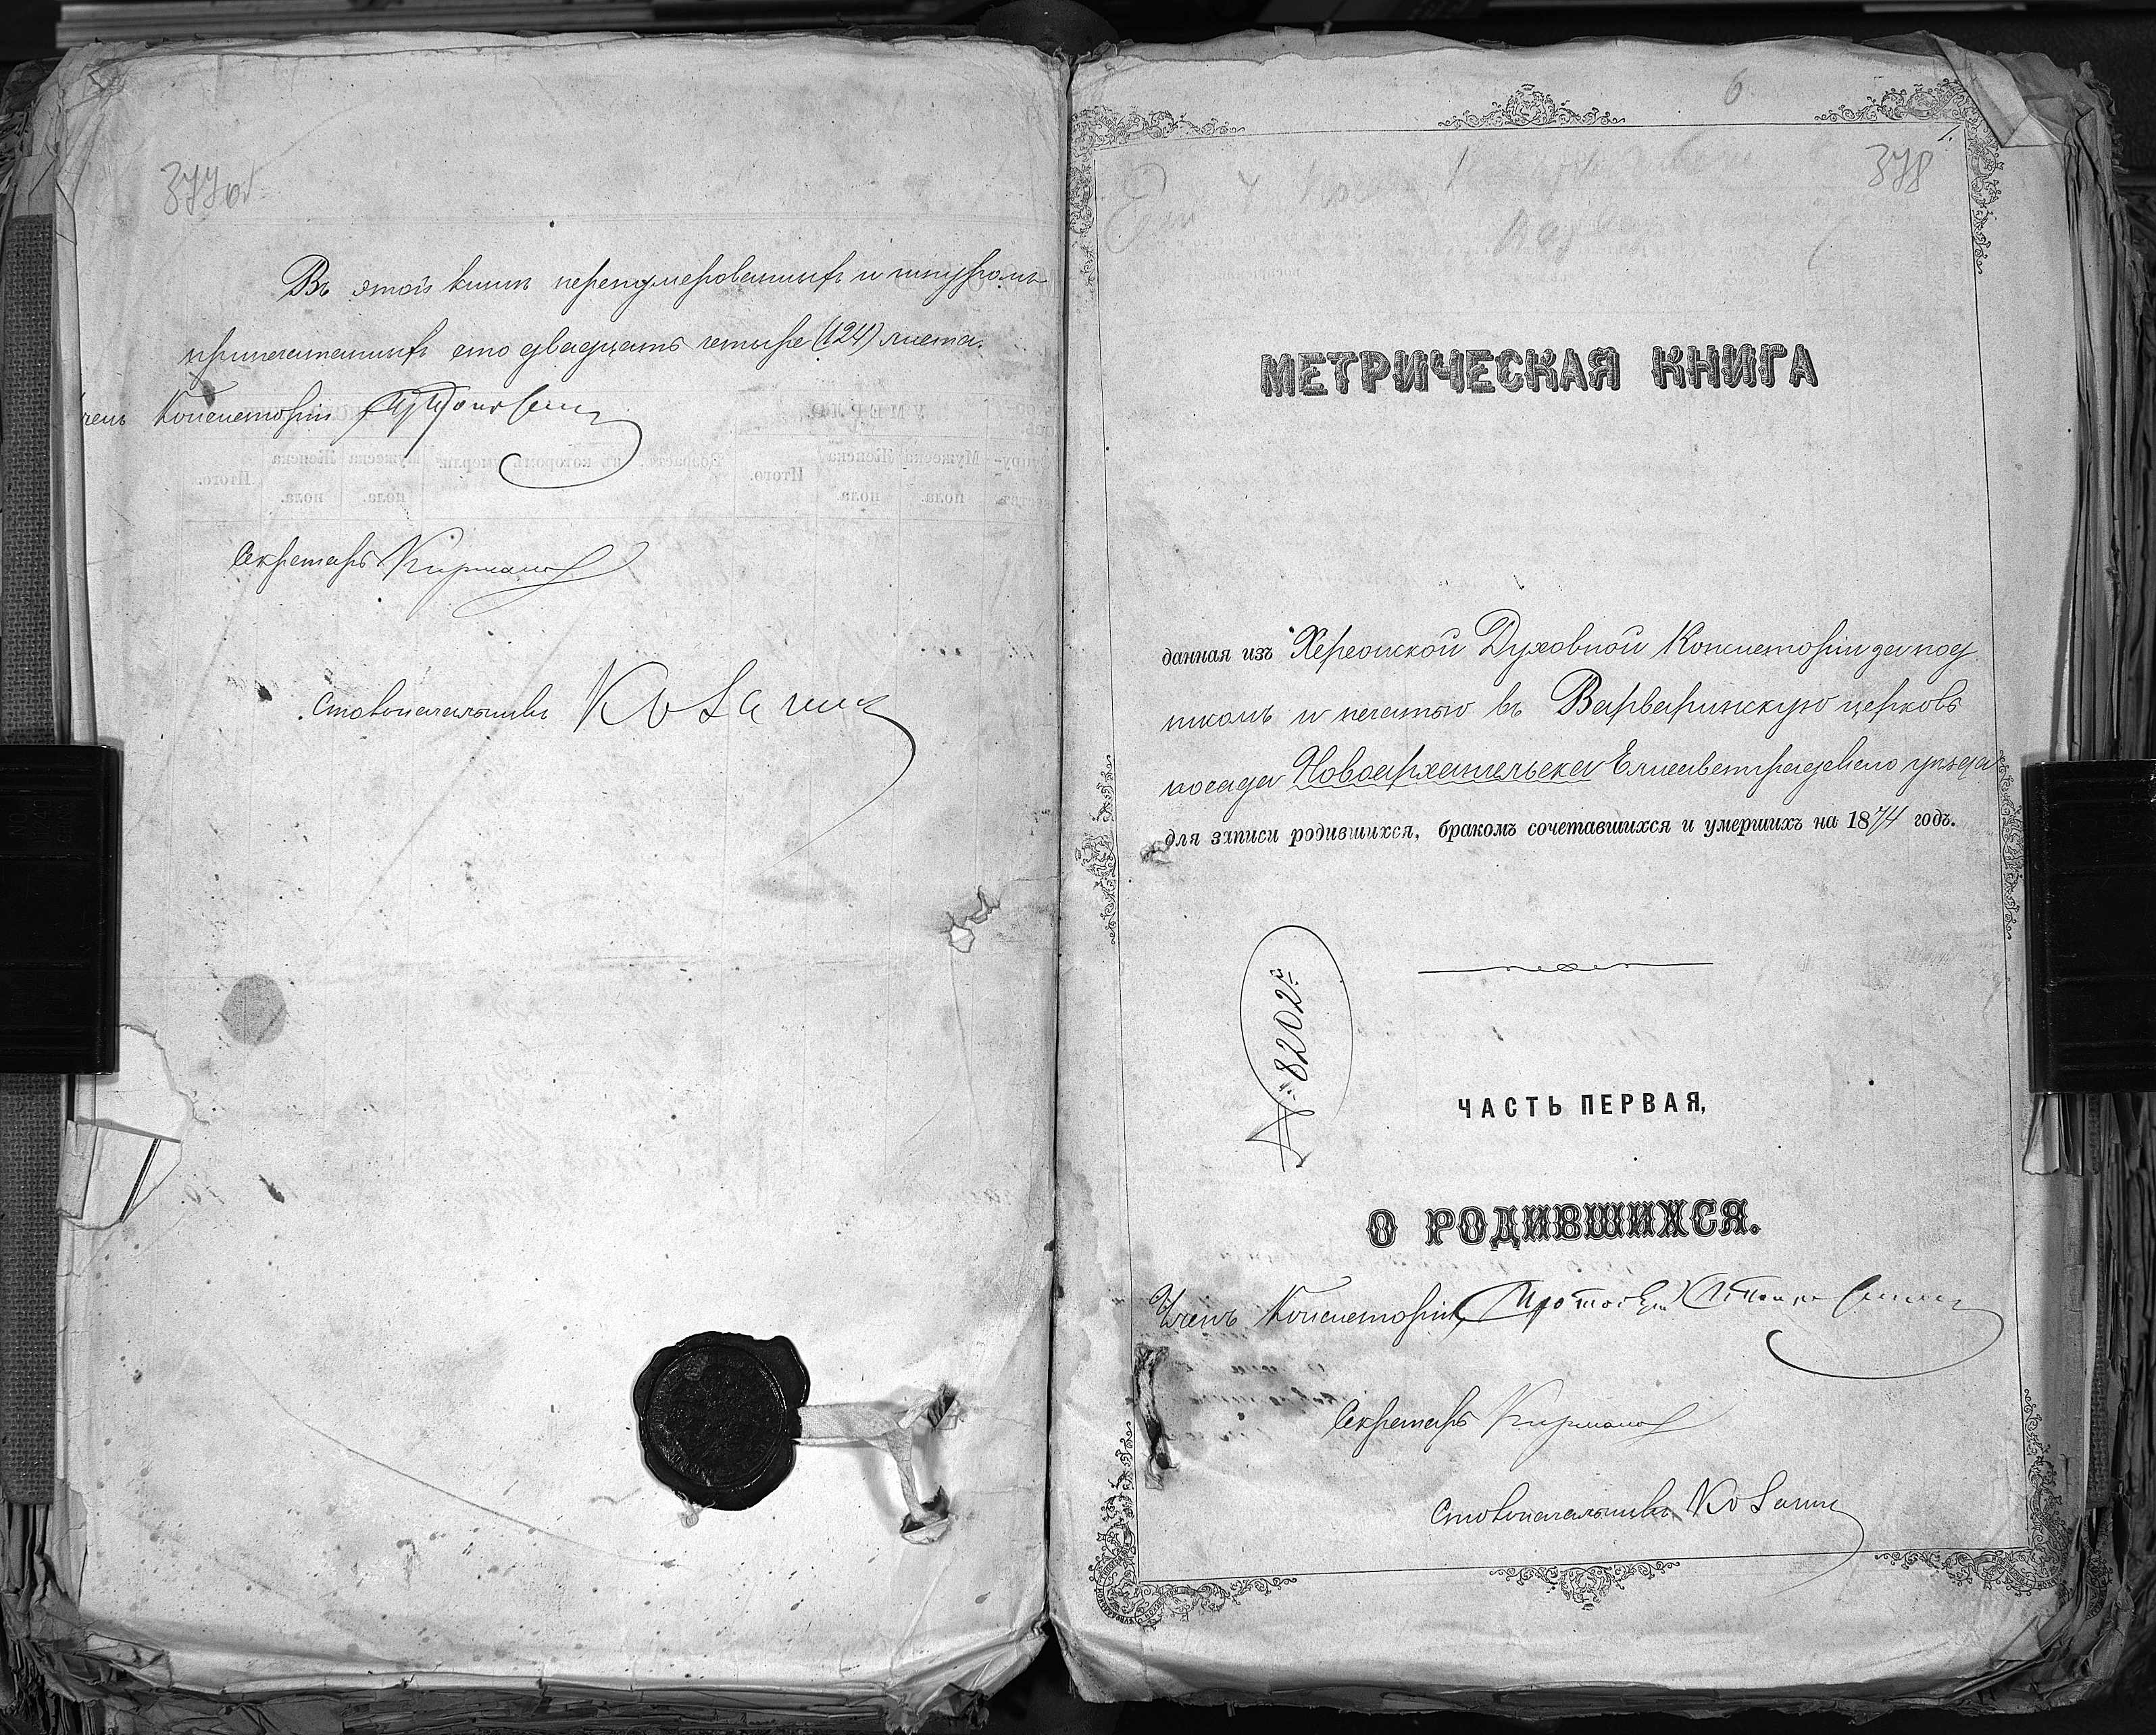 377об
Въ этой книгѣ перенумерованныхъ и шнуромъ
припечатанныхъ сто двадцать четыре (124) листа.
Членъ Консисторіи
Секретарь
Столоначальникъ
6
1.
378
МЕТРИЧЕСКАЯ КНИГА
данная изъ Херсонской Духовной Консисторіи за под
писомъ и печатью въ Варваринскую церковь
посада Новоархангельска Елисаветградскаго уѣзда
для записи родившихся, бракомъ сочетавшихся и умершихъ на 1874 годъ.
№ 8202й
ЧАСТЬ ПЕРВАЯ,
О РОДИВШИХСЯ.
Членъ Консисторіи, Протоіерей
Секретарь
Столоначальникъ